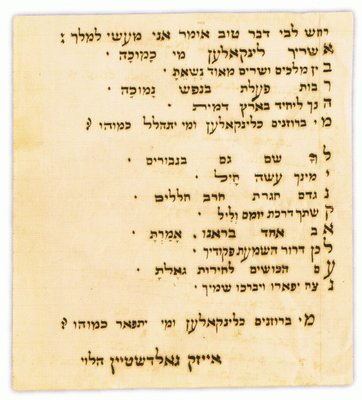 רחש לבי דבר טוב אומר אני מעשי למלך :
א שריך לינקאלען מי כָּמוֹכָה ·
ב ין מלכים ושרים מאוד נשאת ·
ר בות פעלת בנפש נָמוּכָה ·
ה נך ליחיד בארץ דמית ·
מ י ברוזנים כלינקאלען ומי יתהלל כמוהו ?
ל ךָ שם גם בגבורים ·
י מינך עשה חַיִל ·
נ גדם חגרת חרב חללים ·
ק שתך דרכת יומם וליל ·
א ב אחד בראנו אָמַרְתָּ ·
ל כן דרור השמעת פקודיך ·
ע ם הכושים לחירות גאלתָּ ·
נ צח יפארו ויברכו שמיך ·
מ י ברוזנים כלינקאלען ומי יתפאר כמוהו ?
אייזק גאלדשטיין הלוי